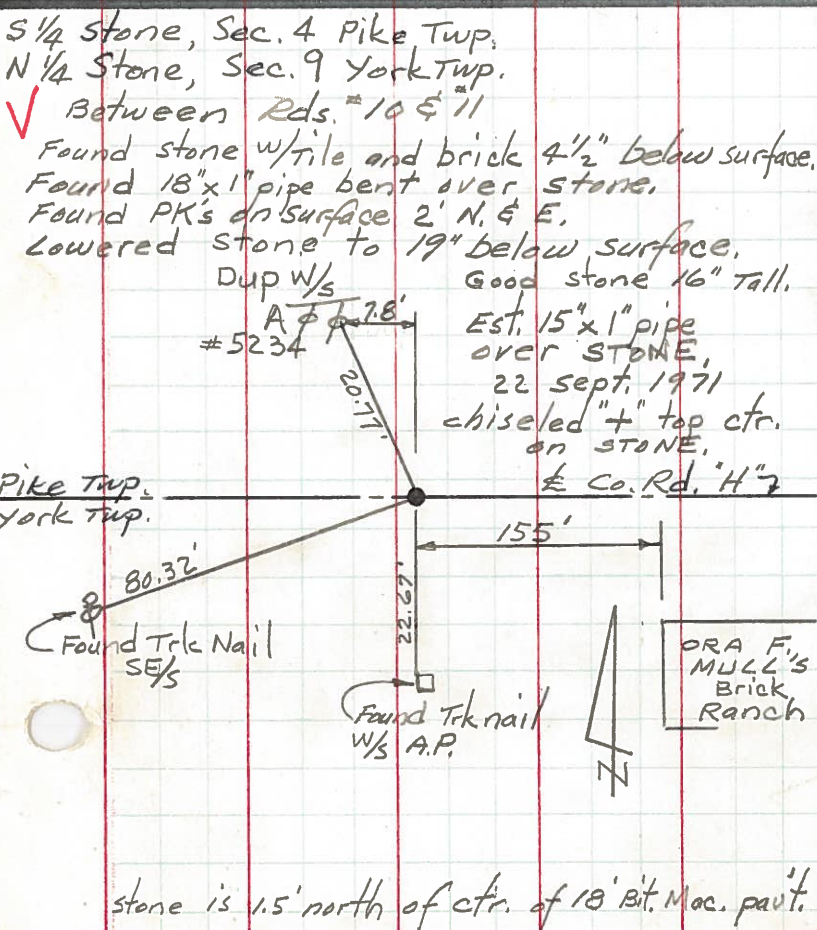 S 1/4 Stone, Sec. 4 Pike Twp.
N 1/4 Stone, Sec. 9 York Twp.
✓ Between Rds. #10 & 11
Found stone w/Tile and brick 4 1/2" below surface.
Found 18"x 1" pipe bent over stone.
Found PK's on surface 2' N. & E.
Lowered stone to 19" below surface.
Dup W/s
A
#5234
7.8'
20.77'
Good stone 16" Tall.
Est. 15"x 1" pipe
over STONE,
22 Sept. 1971
chiseled "+" top ctr.
on STONE.
Pike Twp.
York Twp.
℄ Co. Rd. "H"
155'
80.32'
22.67'
Found Trk Nail
SE/s
Found Trk nail
W/s A.P.
ORA F.
MULL'S
Brick
Ranch
N
stone is 1.5' north of ctr. of 18' Bit. Mac. pav't.